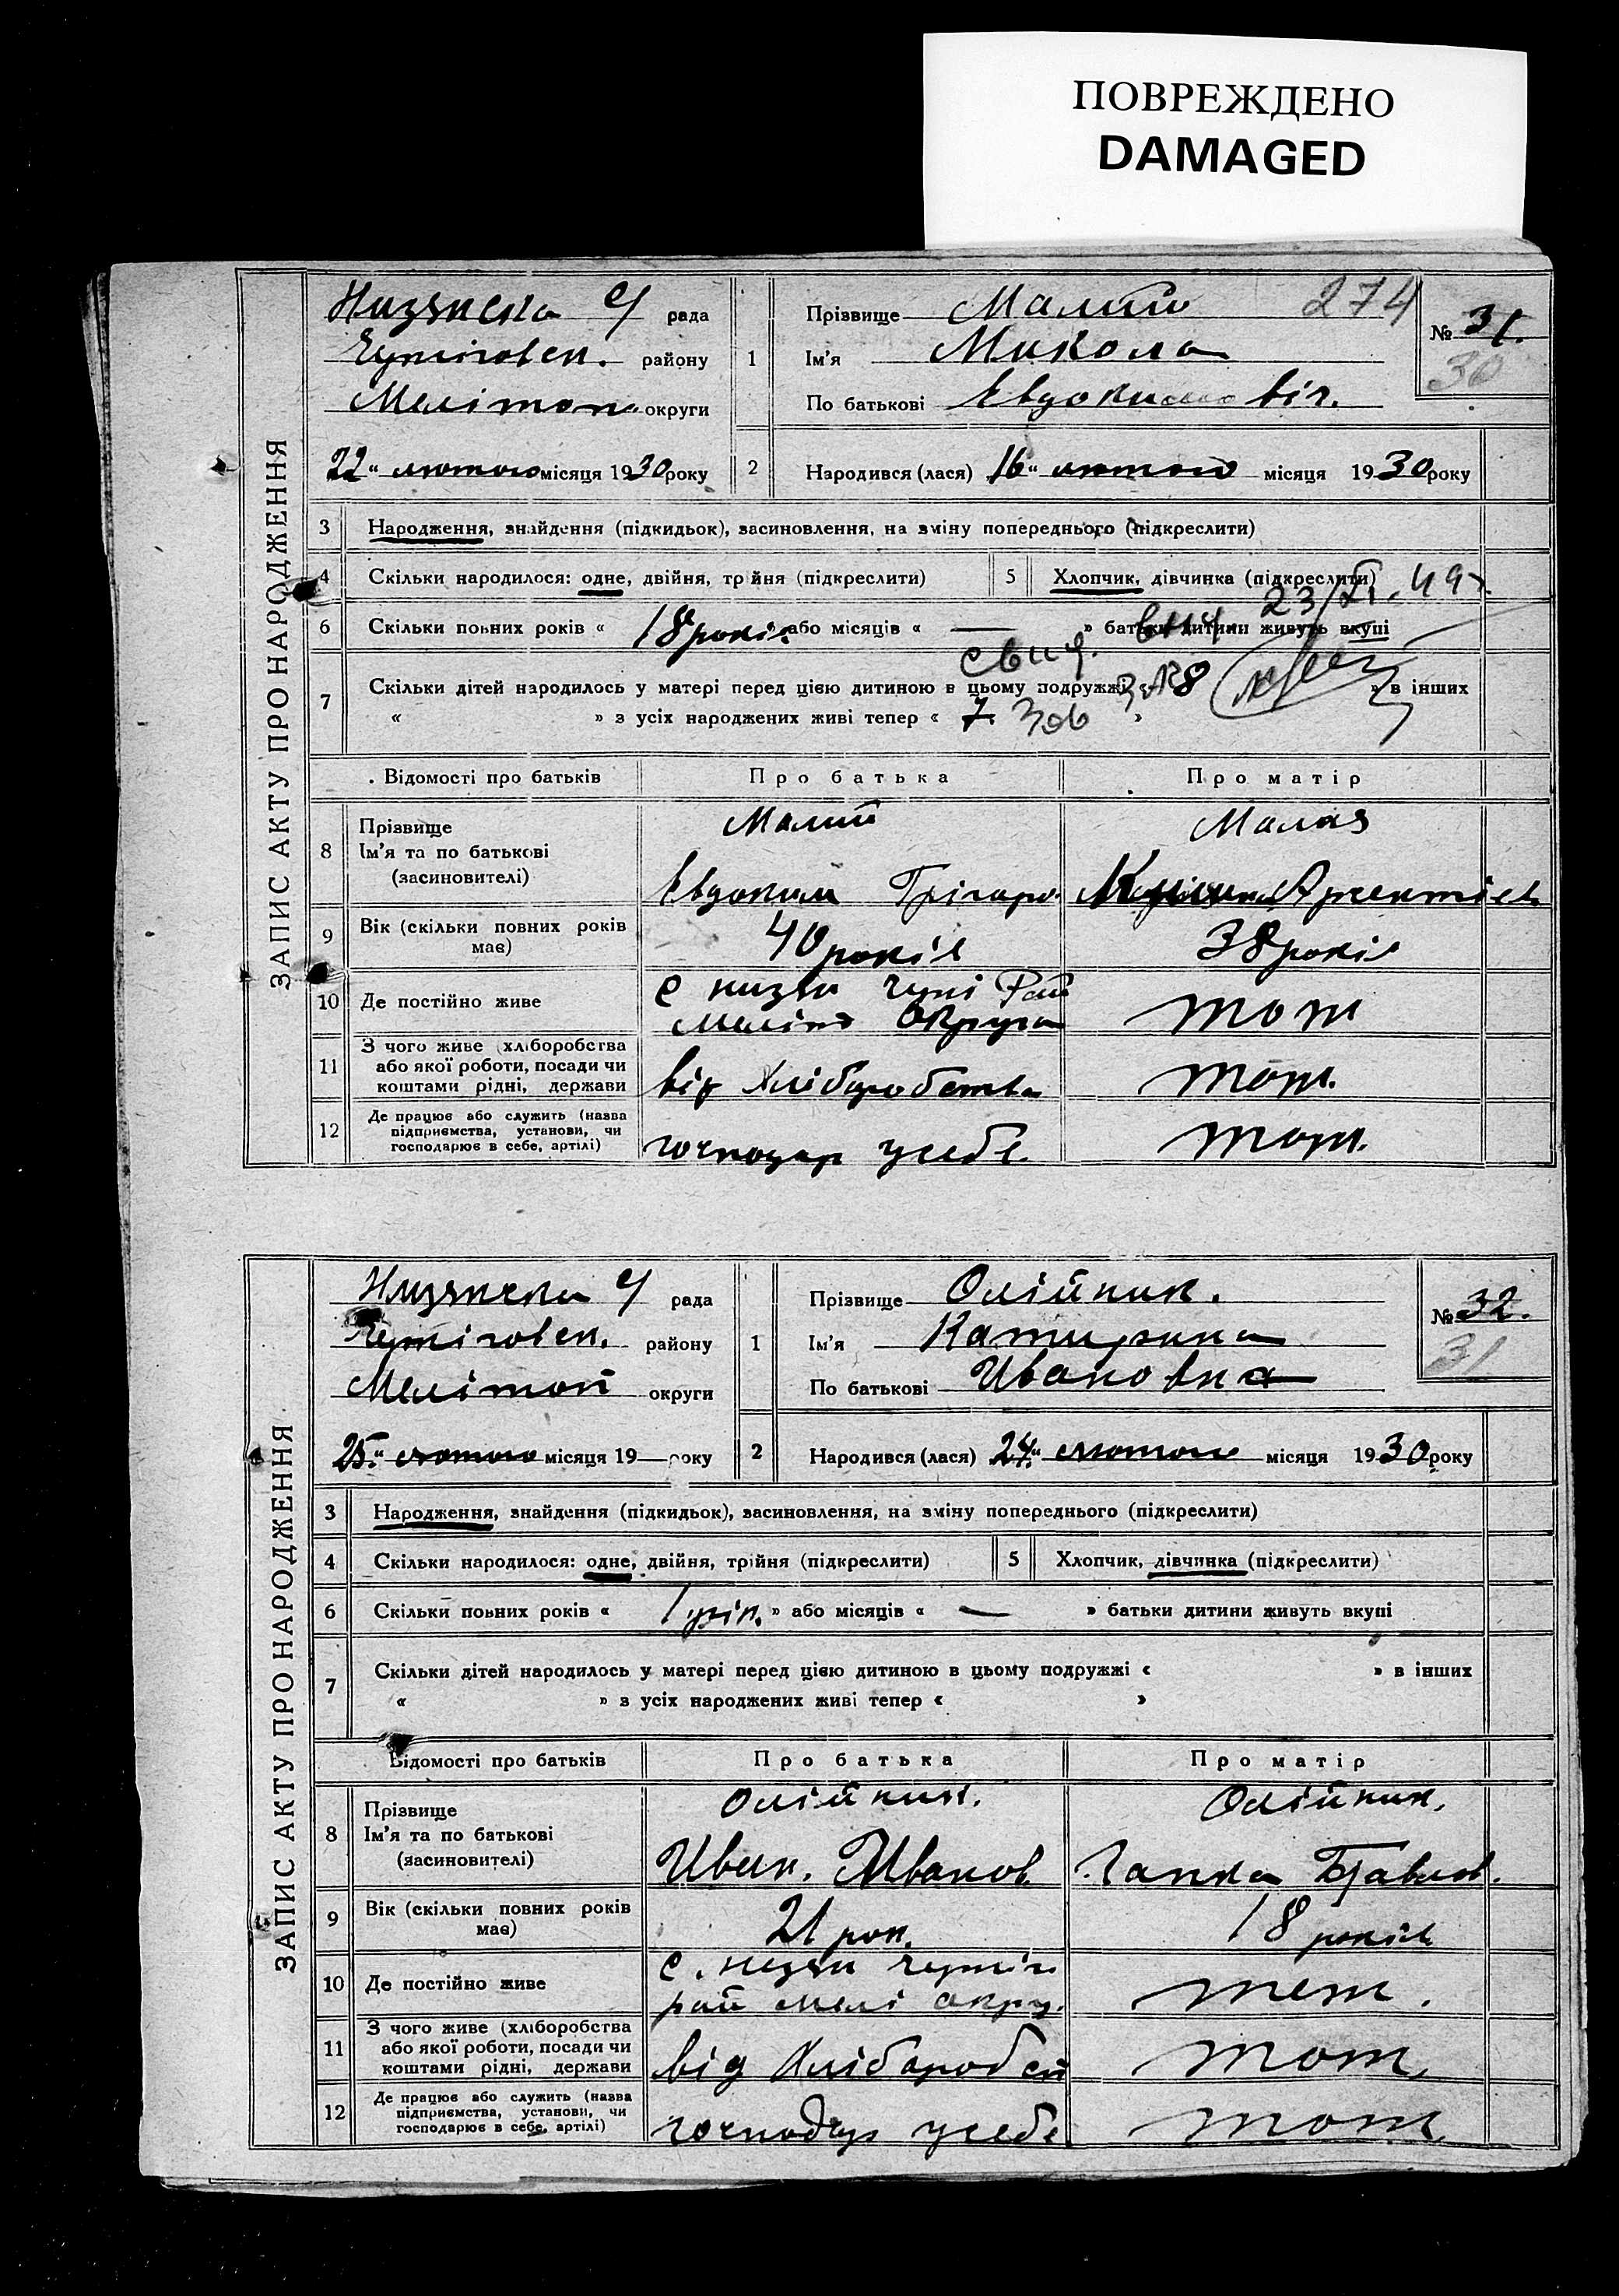 ПОВРЕЖДЕНО
DAMAGED
274
ЗАПИС АКТУ ПРО НАРОДЖЕННЯ
Низянска с/ рада
району
Мелітоп. округи
22 " лютого місяця 1930 року
1
Прізвище Малий
Ім'я Микола
По батькові Евдокимовіч.
№ 31.
30
2 Народився (лася) 16 " лютого місяця 1930 року
3 Народження, знайдення (підкидьок), засиновлення, на зміну попереднього (підкреслити)
4 Скільки народилося: одне, двійня, трійня (підкреслити) 5 Хлопчик, дівчинка (підкреслити)
23/VI.49 г.
6 Скільки повних років « 18 років » або місяців « — » батьки дитини живуть вкупі
7 Скільки дітей народилось у матері перед цією дитиною в цьому подружжі « 8 » в інших
« » з усіх народжених живі тепер « 7 »
Відомості про батьків Про батька Про матір
8 Прізвище Малий Малая
Ім'я та по батькові
(засиновителі) Евдоким Грігоро.
9 Вік (скільки повних років має) 40 років 38 років
10 Де постійно живе с низяни Рай Округа тот
11 З чого живе (хліборобства або якої роботи, посади чи коштами рідні, держави від Хліборобства тот.
12 Де працює або служить (назва підприємства, установи, чи господарює в себе, артілі) господар усебе. тот.
ЗАПИС АКТУ ПРО НАРОДЖЕННЯ
Низянска с/ рада
району
Мелітоп округи
25 " лютого місяця 19— року
1
Прізвище Олійник.
Ім'я Катирина
По батькові Ивановна
№ 32.
31
2 Народився (лася) 24 " лютого місяця 1930 року
3 Народження, знайдення (підкидьок), засиновлення, на зміну попереднього (підкреслити)
4 Скільки народилося: одне, двійня, трійня (підкреслити) 5 Хлопчик, дівчинка (підкреслити)
6 Скільки повних років « 1 рік. » або місяців « — » батьки дитини живуть вкупі
7 Скільки дітей народилось у матері перед цією дитиною в цьому подружжі « » в інших
« » з усіх народжених живі тепер « »
Відомості про батьків Про батька Про матір
8 Прізвище Олійник. Олійник.
Ім'я та по батькові
(засиновителі) Иван. Иванов Гапка Павлов.
9 Вік (скільки повних років має) 21 рок. 18 років
10 Де постійно живе с. низяни рай Мелі окру. теж.
11 З чого живе (хліборобства або якої роботи, посади чи коштами рідні, держави від Хліборобст тот.
12 Де працює або служить (назва підприємства, установи, чи господарює в себе, артілі) господар усебе тот